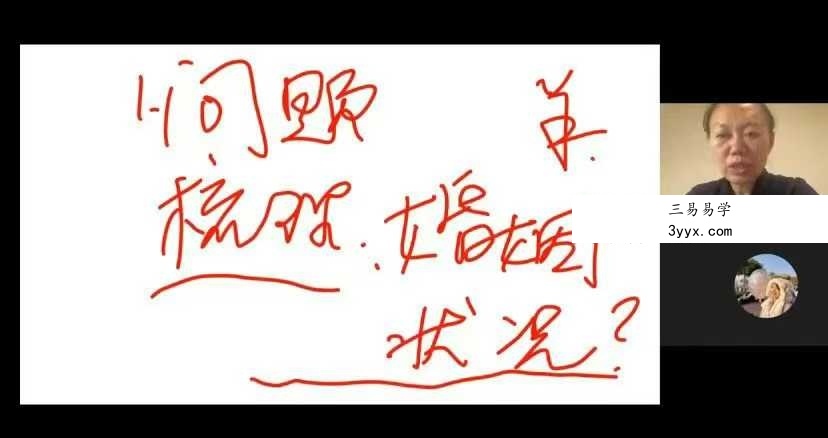 1. 问题
梳理. 婚姻
状况?
三易易学
3yyx.com